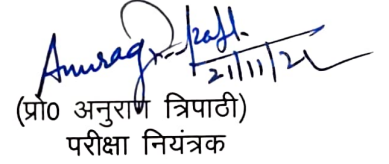 Anurag Tripathi
21/11/21
(प्रो0 अनुराग त्रिपाठी)
परीक्षा नियंत्रक